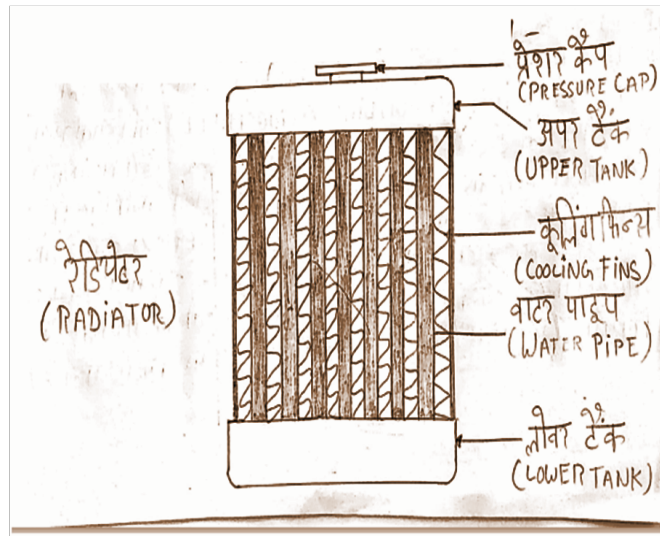 रेडियेटर
(RADIATOR)
प्रेशर कैप
(PRESSURE CAP)
अपर टैंक
(UPPER TANK)
कूलिंग फिन्स
(COOLING FINS)
वाटर पाइप
(WATER PIPE)
लोवर टैंक
(LOWER TANK)